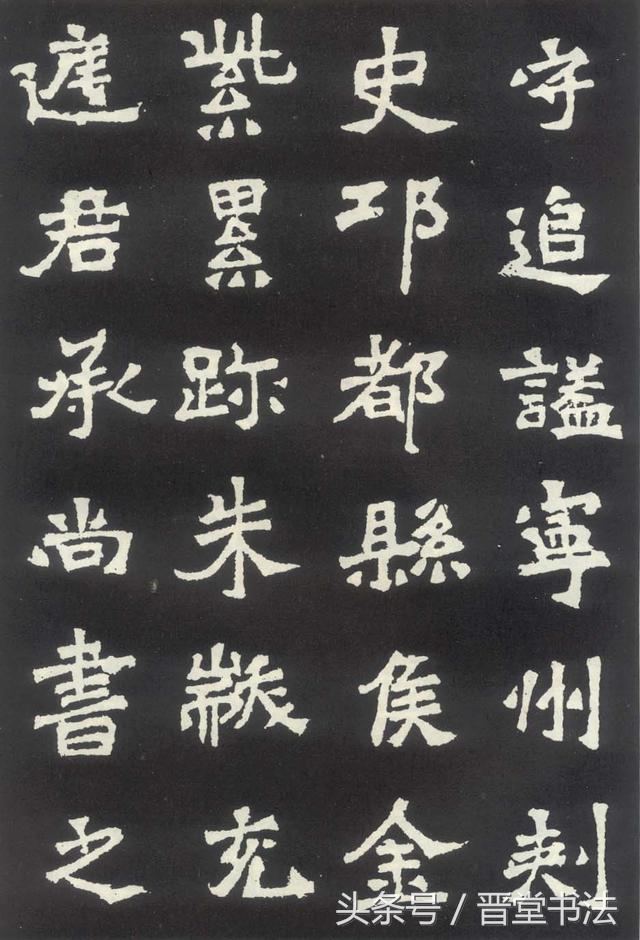 守追謚寧州刺
史邛都縣侯金
紫累跡朱黻充
庭君承尚書之
头条号 / 晋堂书法